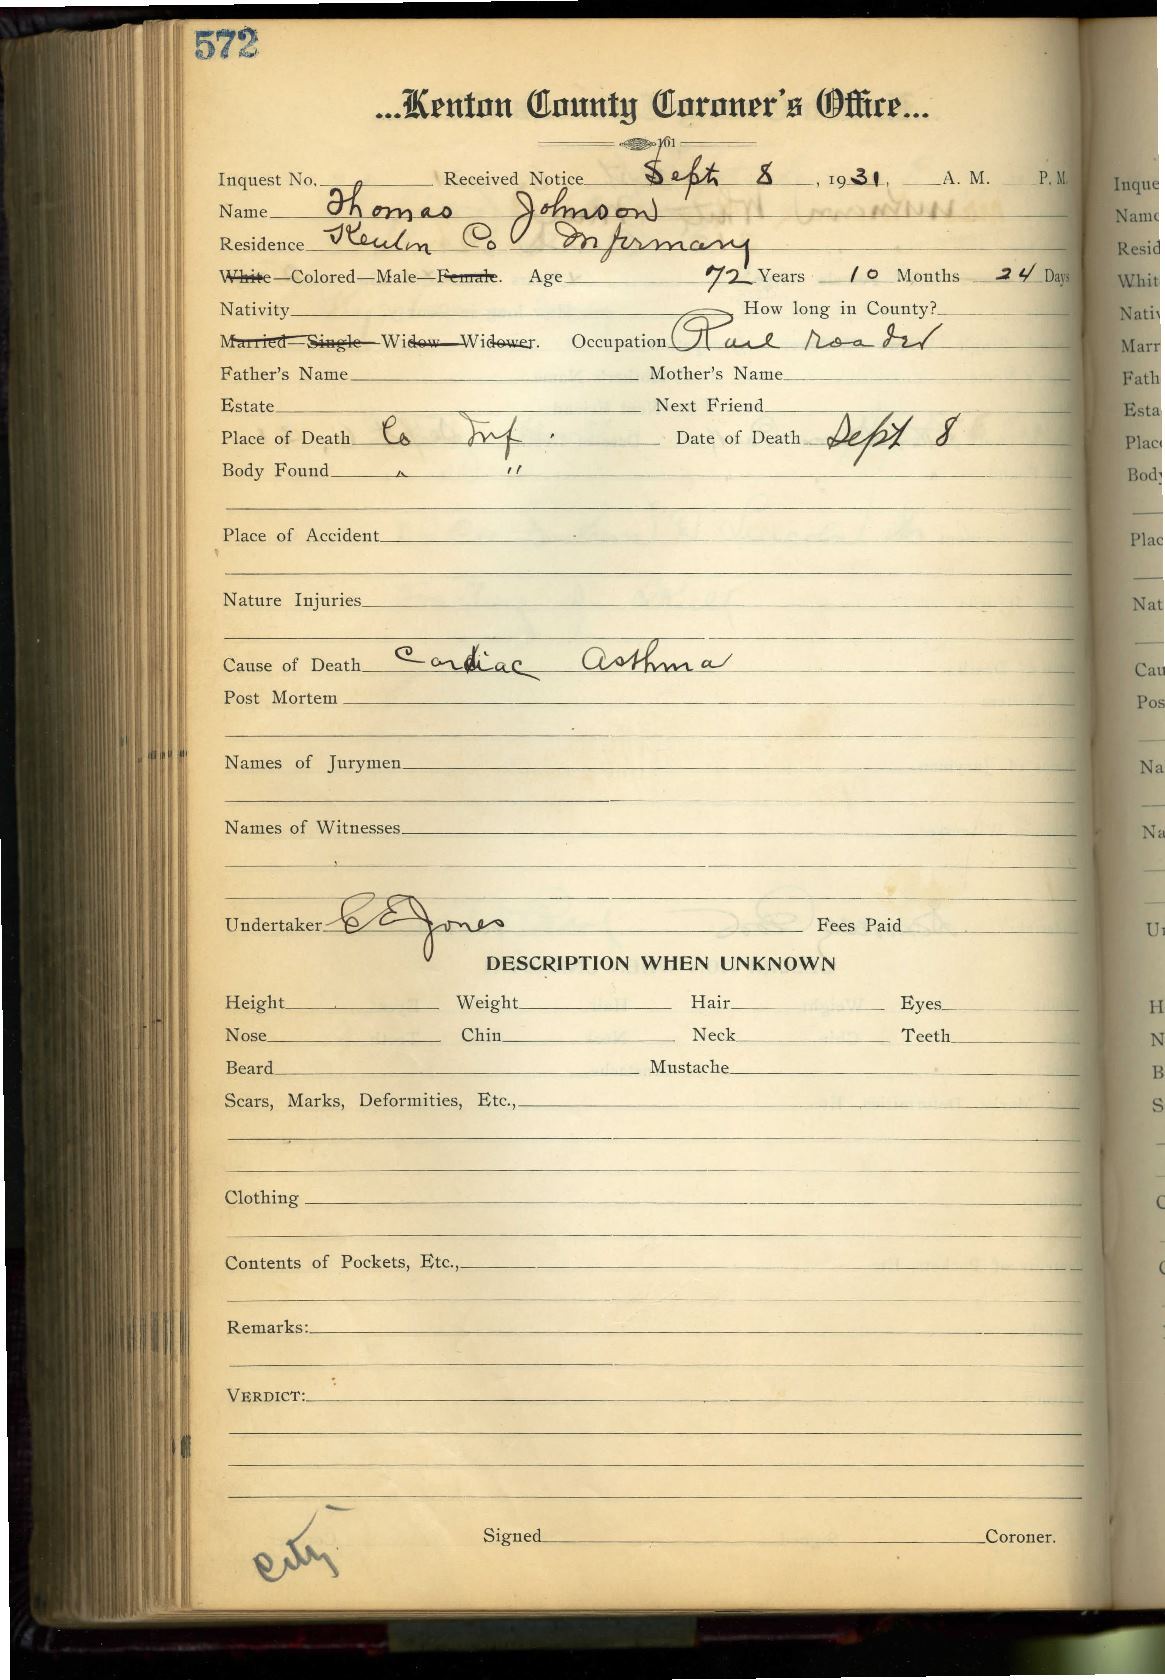 572
...Kenton County Coroner's Office...
161
Inquest No. Received Notice Sept 8, 1931, A. M. P. M.
Name Thomas Johnson
Residence Kenton Co Infirmary
White—Colored—Male—Female. Age 72 Years 10 Months 24 Days
Nativity How long in County?
Married—Single—Widow—Widower. Occupation Rail roader
Father's Name Mother's Name
Estate Next Friend
Place of Death Co Inf. Date of Death Sept 8
Body Found " "
Place of Accident
Nature Injuries
Cause of Death Cardiac Asthma
Post Mortem
Names of Jurymen
Names of Witnesses
Undertaker C E Jones Fees Paid
DESCRIPTION WHEN UNKNOWN
Height Weight Hair Eyes
Nose Chin Neck Teeth
Beard Mustache
Scars, Marks, Deformities, Etc.,
Clothing
Contents of Pockets, Etc.,
Remarks:
VERDICT:
Signed Coroner.
City
Inque
Name
Resid
Whit
Nativ
Marr
Fath
Esta
Place
Body
Plac
Nat
Cau
Pos
Na
Na
Un
H
N
B
S
C
C